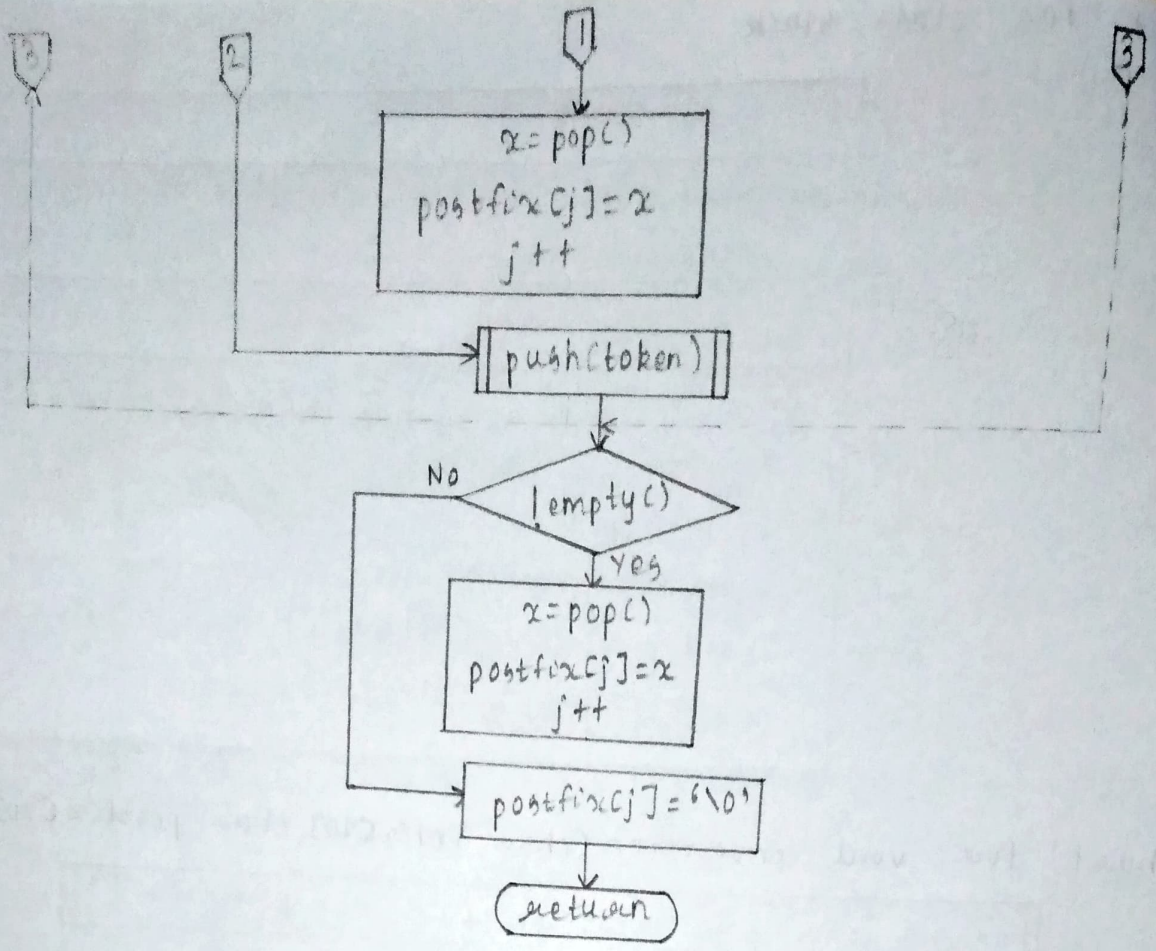 3
2
1
3
x=pop()
postfix[j]=x
j++
push(token)
No
!empty()
Yes
x=pop()
postfix[j]=x
j++
postfix[j]='\0'
return